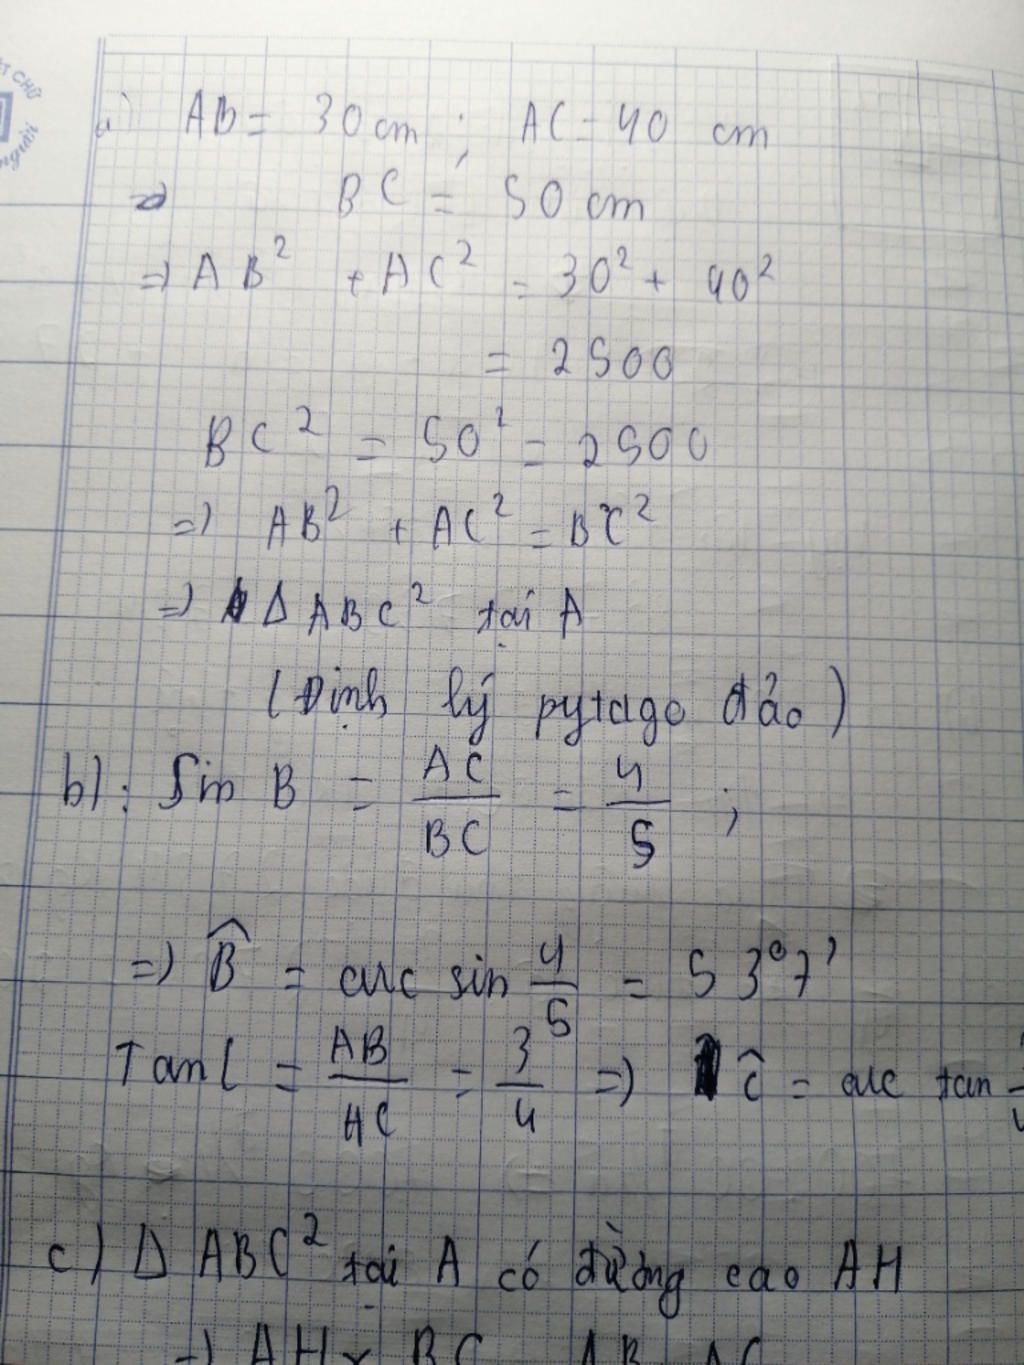 a) AB = 30 cm ; AC = 40 cm
=> BC = 50 cm
=> AB² + AC² = 30² + 40²
= 2500
BC² = 50² = 2500
=> AB² + AC² = BC²
=> Δ ABC² tại A
(Định lý pytago đảo)
b): Sin B = AC/BC = 4/5 ;
=> B̂ = arc sin 4/5 = 53°7'
Tan C = AB/AC = 3/4 => Ĉ = arc tan
c) Δ ABC² tại A có đường cao AH
=> AH × BC = AB . AC